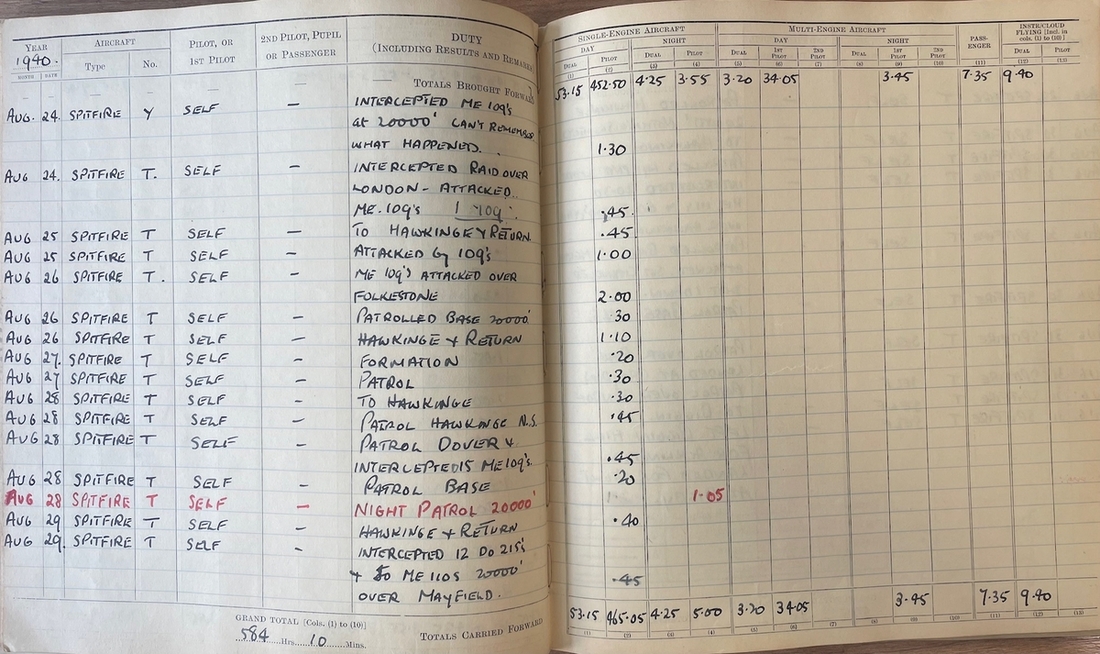 YEAR AIRCRAFT PILOT, OR 2ND PILOT, PUPIL DUTY
1940. 1ST PILOT OR PASSENGER (INCLUDING RESULTS AND REMARKS
MONTH DATE Type No.
— — — — — — TOTALS BROUGHT FORWARD
AUG. 24. SPITFIRE Y SELF — INTERCEPTED ME 109's
at 20000' CAN'T REMEMBER
WHAT HAPPENED.
AUG 24. SPITFIRE T. SELF — INTERCEPTED RAID OVER
LONDON - ATTACKED
ME. 109's 1 109.
AUG 25 SPITFIRE T SELF — TO HAWKINGE & RETURN
AUG 25 SPITFIRE T SELF — ATTACKED by 109's
AUG 26 SPITFIRE T. SELF — ME 109's ATTACKED OVER
FOLKESTONE
AUG 26 SPITFIRE T SELF — PATROLLED BASE 20000'
AUG 26 SPITFIRE T SELF — HAWKINGE & RETURN
AUG 27. SPITFIRE T SELF — FORMATION
AUG 27 SPITFIRE T SELF — PATROL
AUG 28 SPITFIRE T SELF — TO HAWKINGE
AUG 28 SPITFIRE T SELF — PATROL HAWKINGE N.S.
AUG 28 SPITFIRE T SELF — PATROL DOVER &
INTERCEPTED 15 ME 109's.
AUG 28 SPITFIRE T SELF — PATROL BASE
AUG 28 SPITFIRE T SELF — NIGHT PATROL 20000'
AUG 29 SPITFIRE T SELF — HAWKINGE & RETURN
AUG 29. SPITFIRE T SELF — INTERCEPTED 12 Do 215s
& 50 ME 110S 20000'
OVER MAYFIELD.
GRAND TOTAL [Cols. (1) to (10)]
584 Hrs. 10 Mins.
TOTALS CARRIED FORWARD
SINGLE-ENGINE AIRCRAFT MULTI-ENGINE AIRCRAFT PASS-ENGER INSTR/CLOUD FLYING [Incl. in cols. (1) to (10)]
DAY NIGHT DAY NIGHT
DUAL PILOT DUAL PILOT DUAL 1ST PILOT 2ND PILOT DUAL 1ST PILOT 2ND PILOT DUAL PILOT
(1) (2) (3) (4) (5) (6) (7) (8) (9) (10) (11) (12) (13)
53.15 452.50 4.25 3.55 3.20 34.05 3.45 7.35 9.40
1.30
.45
.45
1.00
2.00
30
1.10
.20
.30
.30
.45
.45
.20
1.05
.40
.45
53.15 465.05 4.25 5.00 3.20 34.05 3.45 7.35 9.40
(1) (2) (3) (4) (5) (6) (7) (8) (9) (10) (11) (12) (13)